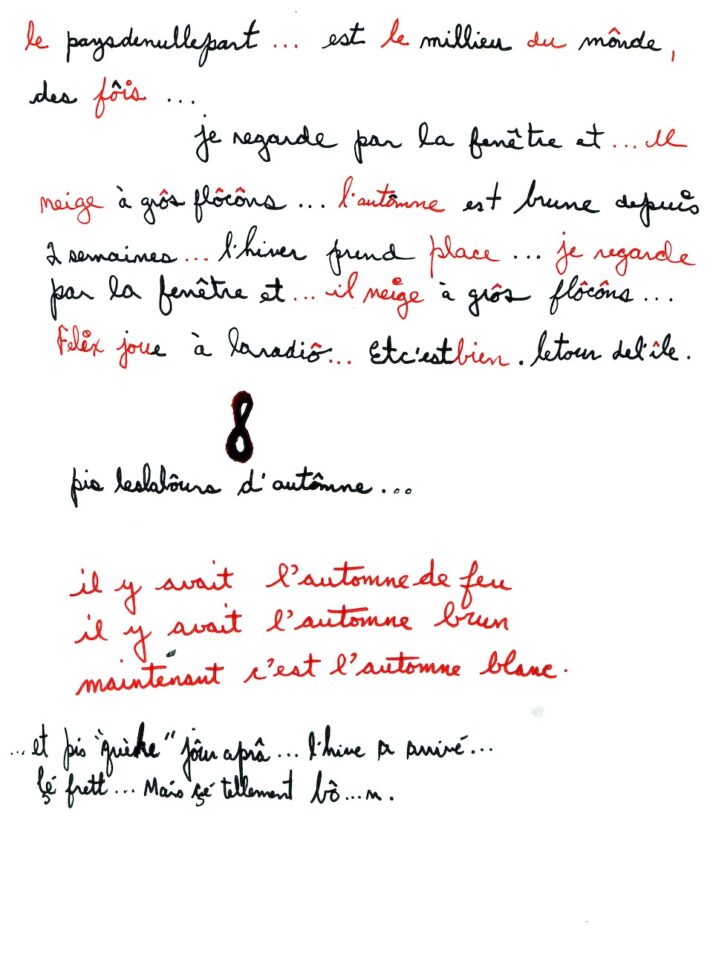 le paysdenullepart ... est le millieu du mônde,
des fôis ...
je regarde par la fenêtre et ... il
neige à grôs flôcôns ... l'autômne est brune depuis
2 semaines ... l'hiver prend place ... je regarde
par la fenêtre et ... il neige à grôs flôcôns ...
Felix joue à laradiô ... Etc'estbien . letour del'île .
8
pis leslabôurs d'autômne ...
il y avait l'automne de feu
il y avait l'automne brun
maintenant c'est l'automne blanc .
... et pis "quèke" jôur aprâ ... l'hive a arrivé ...
çé frett ... Mais çé tellement bô ... n .